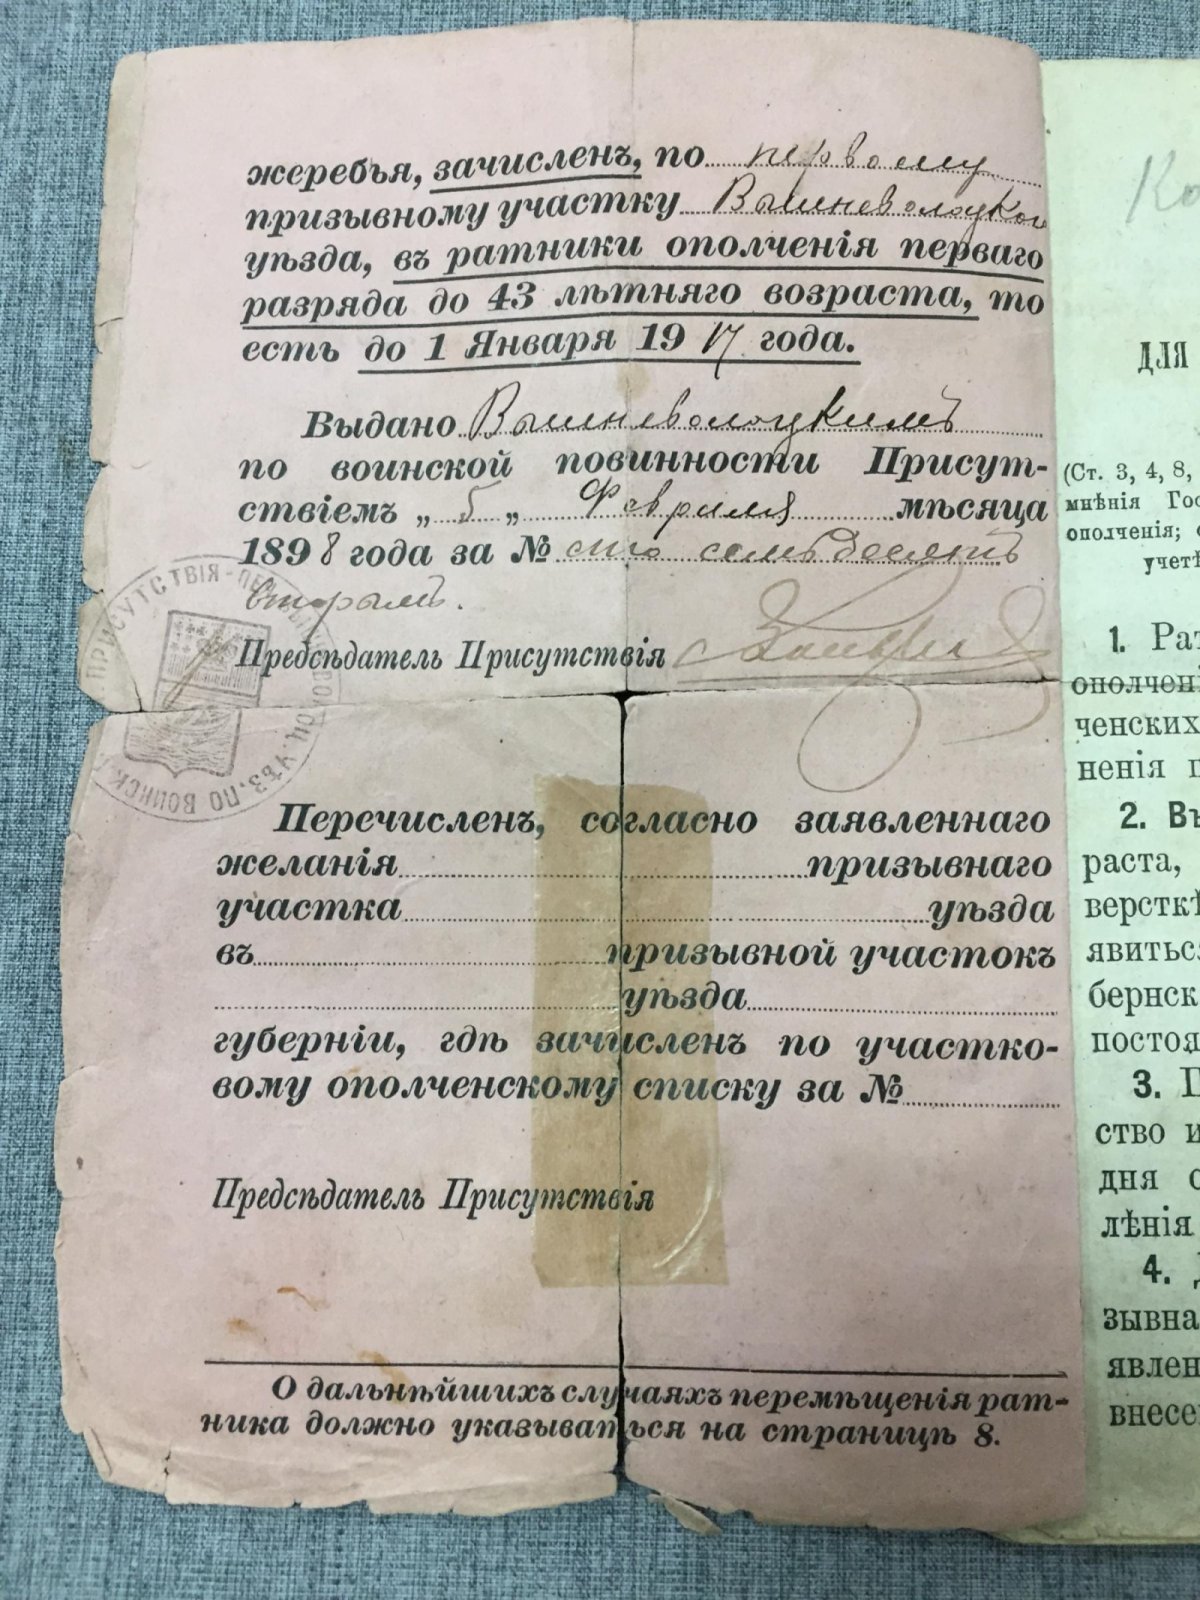 жеребья, зачисленъ, по первому
призывному участку Вышневолоцкого
уѣзда, въ ратники ополченія перваго
разряда до 43 лѣтняго возраста, то
есть до 1 Января 1917 года.
Выдано Вышневолоцкимъ
по воинской повинности Присут-
ствіемъ „ 5 „ Февраля мѣсяца
1898 года за № сто семьдесятъ
вторымъ.
Предсѣдатель Присутствія
ПРИСУТСТВІЯ УѢЗ. ПО ВОИНСК.
Перечисленъ, согласно заявленнаго
желанія призывнаго
участка уѣзда
въ призывной участокъ
уѣзда
губерніи, гдѣ зачисленъ по участко-
вому ополченскому списку за №
Предсѣдатель Присутствія
О дальнѣйшихъ случаяхъ перемѣщенія рат-
ника должно указываться на страницѣ 8.
Ко
ДЛЯ
(Ст. 3, 4, 8,
мнѣнія Гос
ополченія;
учетѣ
1. Рат
ополчені
ченских
ненія п
2. Въ
раста,
верстк
явитьс
бернск
постоя
3. П
ство и
дня с
лѣнія
4.
зывна
явлен
внесе